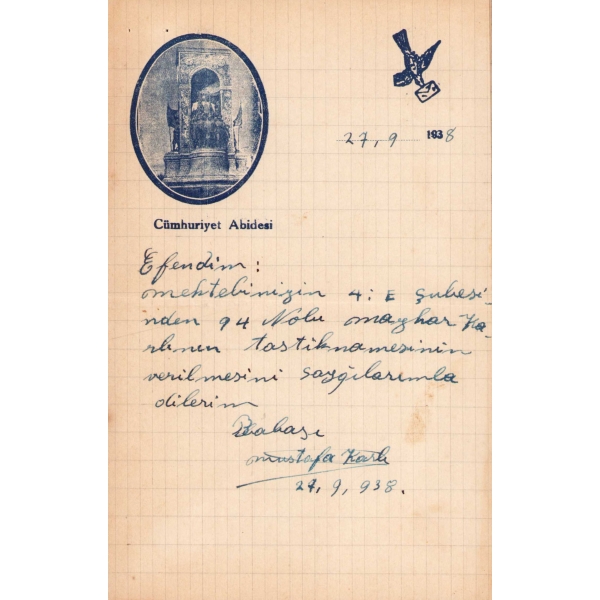 27, 9 1938
Cümhuriyet Abidesi
Efendim:
mektebinizin 4: E Şubesi-
nden 94 Nolu mazhar Ka-
rlının tastiknamesinin
verilmesini saygılarımla
dilerim
Babası
Mustafa Karlı
27, 9, 938.